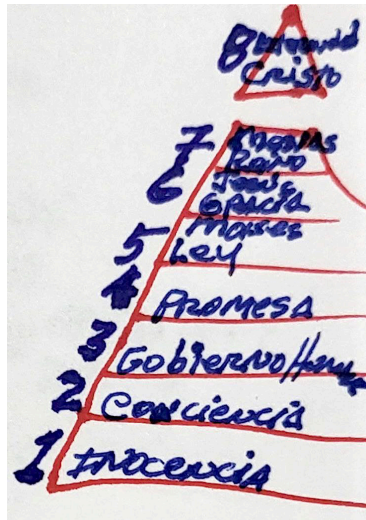 8
Cristo
7
Reino
6 Jesús
Gracia
Moises
5 Ley
4 Promesa
3 Gobierno
2 Conciencia
1 Inocencia